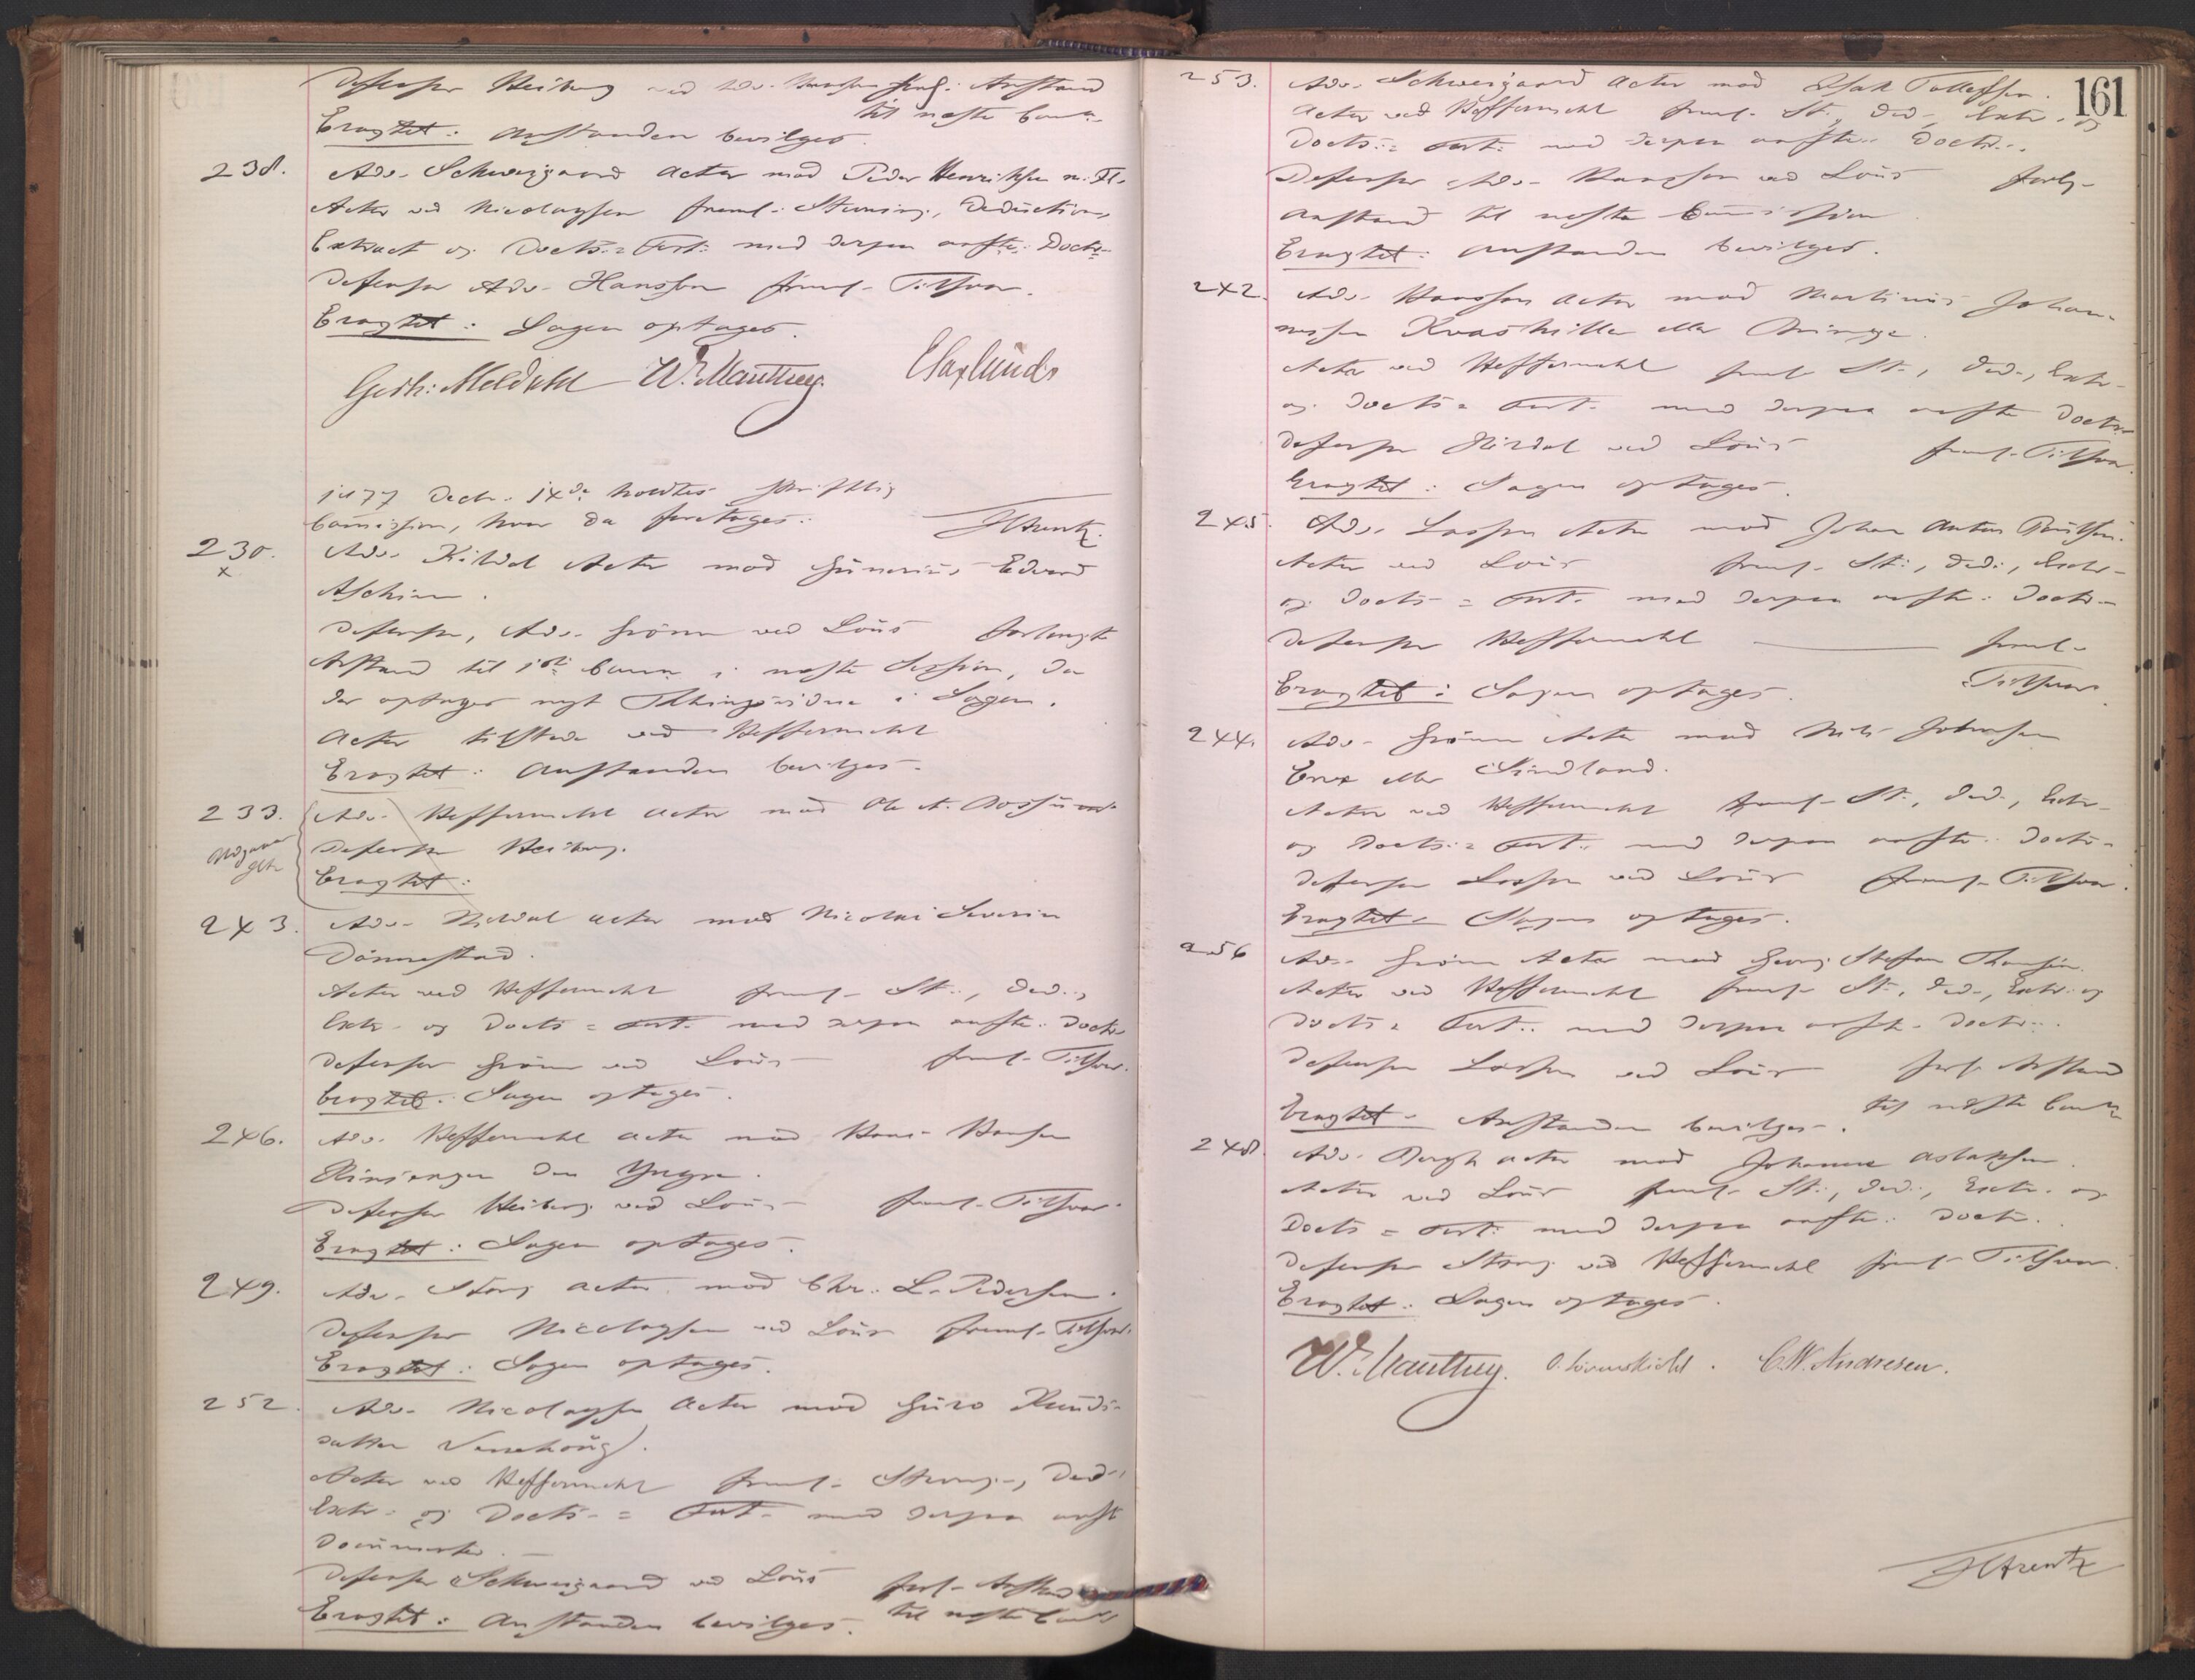 Defensor Heiberg ved Adv. Hansson forl. Anstand
til næste Comm.
Eragtet: Anstanden bevilges.
238. Adv. Schweigaard Actor mod Peder Henriksen m. Fl.
Actor ved Nicolaysen freml. Stevning, Deduction,
Extract og Docts.= Fort. med derpaa anfte. Doctr.
Defensor Adv. Hansson freml. Tilsvar.
Eragtet: Sagen optages.
Gerh: Meldahl W. Manthey.
1877 Decbr. 14de holdtes skriftlig
Commission, hvor da foretages:
230. Adv. Hildal Actor mod Gunerius Edvard
x
Aschim.
Defensor, Adv. Grönn ved Lous forlangte
Anstand til 1ste Comm. i næste Session, da
der optages nyt Thingsvidne i Sagen.
Actor tilstede ved Heffermehl
Eragtet: Anstanden bevilges.
233. Adv. Heffermehl Actor mod Ole A.
Defensor Heiberg.
Eragtet:
243. Adv. Hildal Actor mod Nicolai Severin
Dönnestad.
Actor ved Heffermehl freml. St., Ded.,
Extr. og Docts.= Fort. med derpaa anfte. Doctr.
Defensor Grönn ved Lous freml. Tilsvar.
Eragtet: Sagen optages.
246. Adv. Heffermehl Actor mod Hans Hansen
den Yngre.
Defensor Heiberg ved Lous freml. Tilsvar.
Eragtet: Sagen optages.
249. Adv. Stang Actor mod Chr. L. Pedersen.
Defensor Nicolaysen ved Lous freml. Tilsvar.
Eragtet: Sagen optages.
252. Adv. Nicolaysen Actor mod Guro Knuds-
datter
Actor ved Heffermehl freml. Stevng., Ded.,
Extr. og Docts.= Fort. med derpaa anfte
Documenter.
Defensor Schweigaard ved Lous forl. Anstand
til næste Comm.
Eragtet: Anstanden bevilges.
161
253. Adv. Schweigaard Actor mod Isak Tollefsen.
Actor ved Heffermehl freml. St., Ded., Extr. og
Docts.= Fort. med derpaa anfte. Doctr.
Defensor Adv. Hansson ved Lous forlg.
Anstand til næste Commission
Eragtet: Anstanden bevilges.
242. Adv. Hansson Actor mod Martinus Johan-
nessen eller
Actor ved Heffermehl freml. St., Ded., Extr.
og Docts.= Fort. med derpaa anfte Doctr.
Defensor Hildal ved Lous freml. Tilsvar.
Eragtet: Sagen optages.
245. Adv. Lassen Actor mod Johan Anton
Actor ved Lous freml. St., Ded., Extr.
og Docts.= Fort. med derpaa anfte. Doctr.
Defensor Heffermehl freml.
Tilsvar.
Eragtet: Sagen optages.
244. Adv. Grönn Actor mod Nils Johnsen
eller Sindland.
Actor ved Heffermehl freml. St., Ded., Extr.
og Docts.= Fort. med derpaa anfte. Doctr.
Defensor Lassen ved Lous freml. Tilsvar.
Eragtet: Sagen optages.
256 Adv. Grönn Actor mod Georg Stefan
Actor ved Heffermehl freml. St., Ded., Extr. og
Docts.= Fort. med derpaa anfte. Doctr.
Defensor Lassen ved Lous forl. Anstand
til næste Comm.
Eragtet: Anstanden bevilges.
248. Adv. Bergh Actor mod Johanne Aslaksen.
Actor ved Lous freml. St., Ded., Extr. og
Docts.= Fort. med derpaa anfte. Doctr.
Defensor Stang ved Heffermehl freml. Tilsvar.
Eragtet: Sagen optages.
W. Manthey. C. W. Andresen.